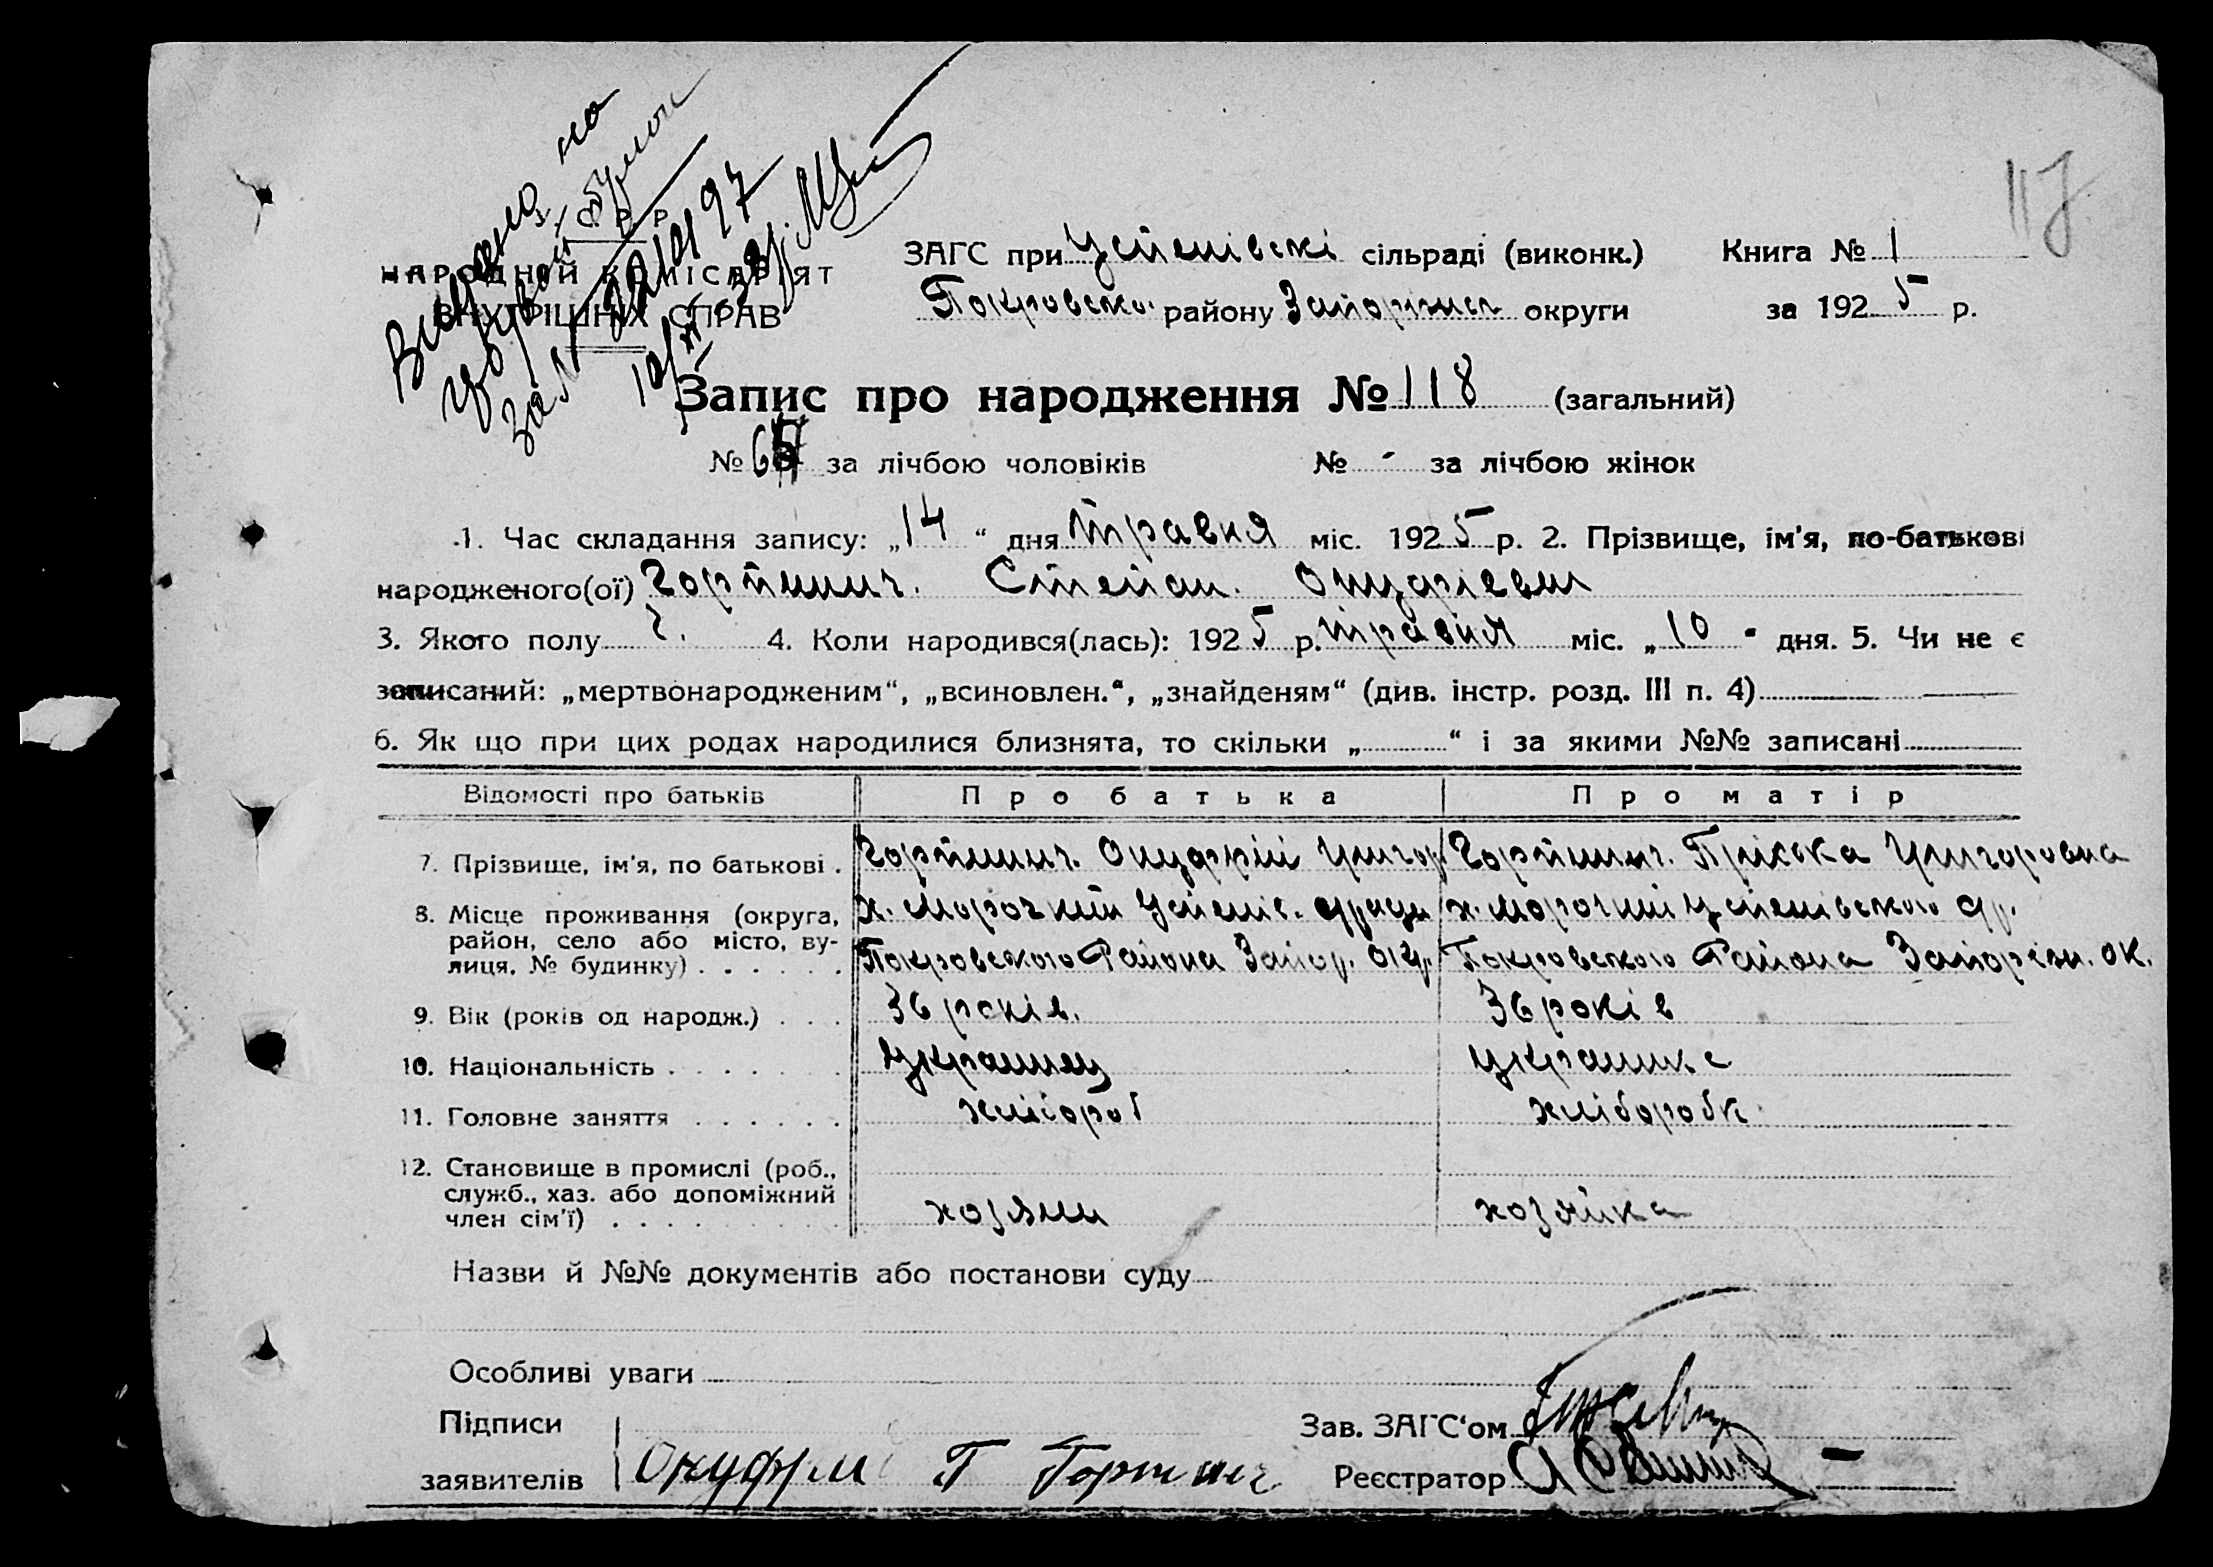 117
Видана на
У.С.Р.Р.
НАРОДНОЙ КОМІСАРІЯТ
ВНУТРІШНІХ СПРАВ
ЗАГС при Успенівскі сільраді (виконк.) Книга № 1
Покровсько району Запоріжск округи за 1925 р.
Запис про народження № 118 (загальний)
№ за лічбою чоловіків № - за лічбою жінок
1. Час складання запису: „14“ дня травня міс. 1925 р. 2. Прізвище, ім'я, по-батькові
народженого(ої) Гортинич. Степан. Онуфріевич
3. Якого полу ч. 4. Коли народився(лась): 1925 р. травня міс. „10“ дня. 5. Чи не є
записаний: „мертвонародженим“, „всиновлен.“, „знайденям“ (див. інстр. розд. III п. 4)
6. Як що при цих родах народилися близнята, то скільки „ “ і за якими №№ записані
Відомості про батьків Про батька Про матір
7. Прізвище, ім'я, по батькові . Гортинич. Онуфрій Григор Гортинич. Пріська Григоровна
8. Місце проживання (округа, х. Морочкин Успенів. х. Морочкин Успенівського
район, село або місто, ву- Покровского Района Запор. окр. Покровского Района Запоріж. ок.
лиця, № будинку)
9. Вік (років од народж.) . . . 36 років. 36 років
10. Національність . . . . . . . Украинец украинка
11. Головне заняття . . . . . . хлібороб хліборобк
12. Становище в промислі (роб.,
служб., хаз. або допоміжний хозяин хозяйка
член сім'ї) . . . .
Назви й №№ документів або постанови суду
Особливі уваги
Підписи Зав. ЗАГС'ом
заявителів Онуфрий Г Гортинич Реєстратор